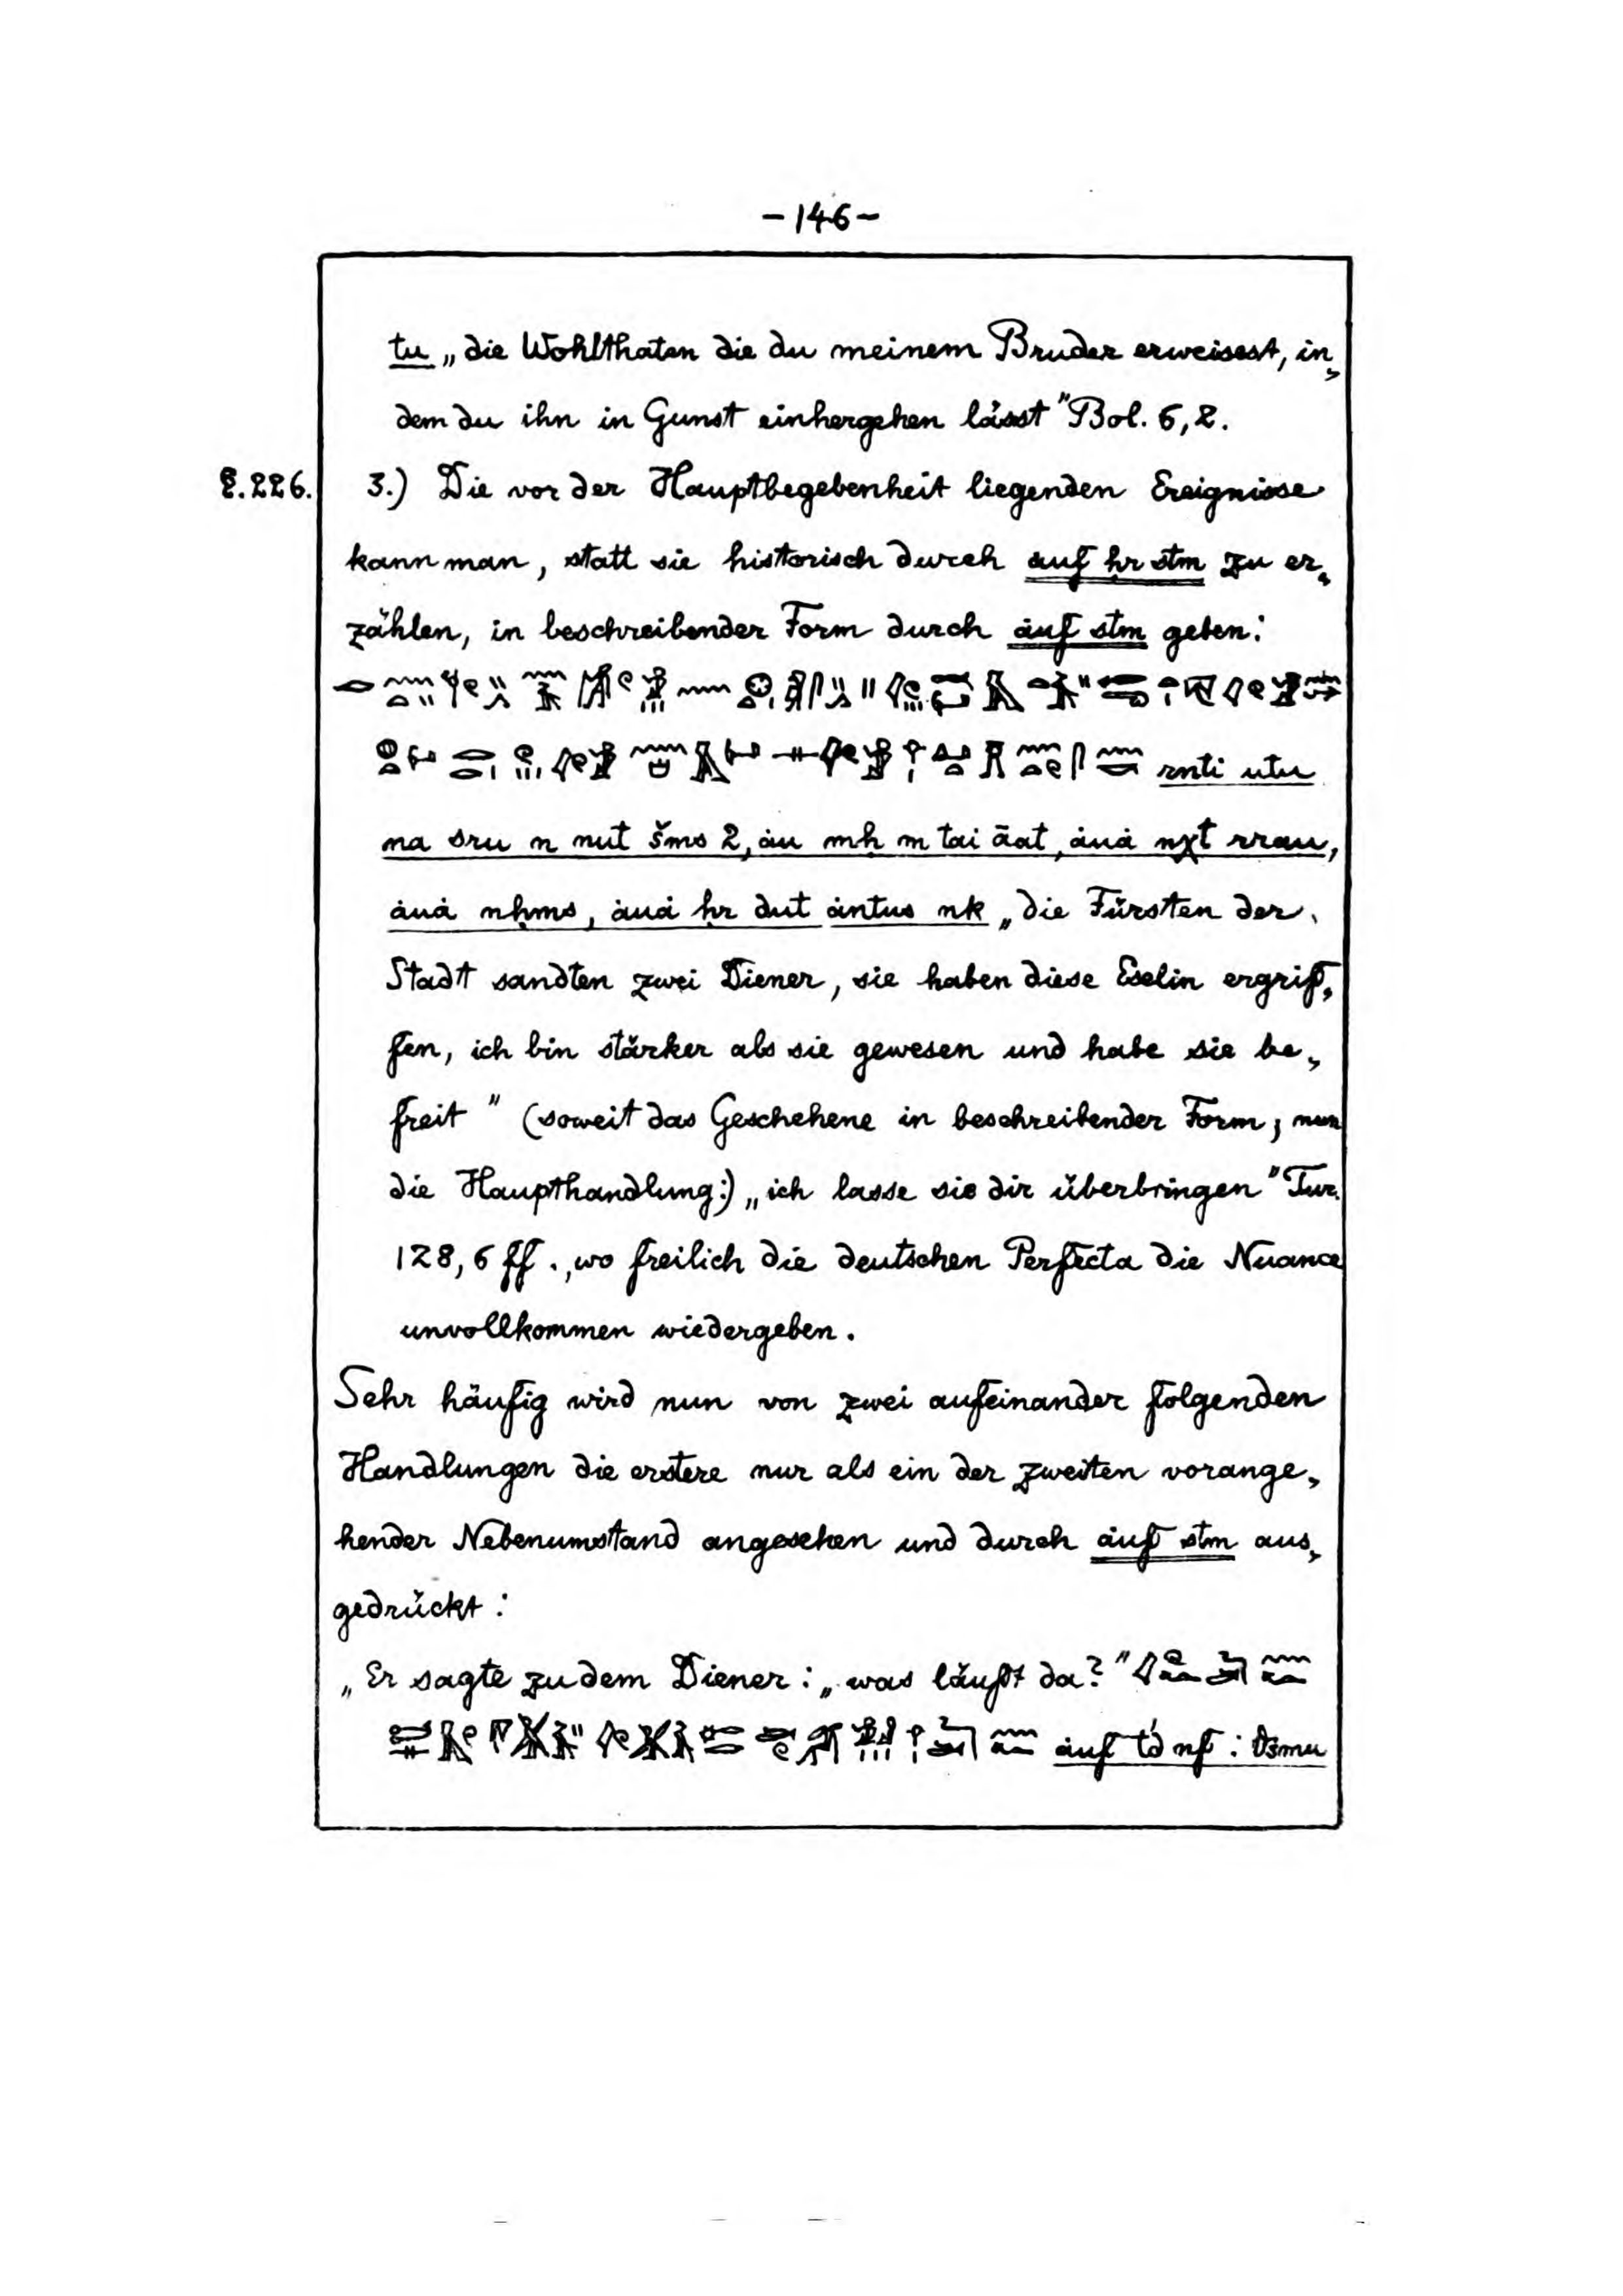 -146-
tu „die Wohlthaten die du meinem Bruder erweisest, in⸗
dem du ihn in Gunst einhergehen lässt" Bol. 6,2.
§.226. 3.) Die vor der Hauptbegebenheit liegenden Ereignisse
kann man, statt sie historisch durch ȧuf ḥr stm zu er⸗
zählen, in beschreibender Form durch ȧuf stm geben:
rnti utu
na sru n nut šms 2, ȧu mḥ m tai āat, ȧuȧ nχt rrau,
ȧuȧ nḥms, ȧuȧ ḥr dut ȧntus nk „die Fürsten der
Stadt sandten zwei Diener, sie haben diese Eselin ergrif⸗
fen, ich bin stärker als sie gewesen und habe sie be⸗
freit" (soweit das Geschehene in beschreibender Form; nun
die Haupthandlung:) „ich lasse sie dir überbringen" Tur.
128,6 ff., wo freilich die deutschen Perfecta die Nuance
unvollkommen wiedergeben.
Sehr häufig wird nun von zwei aufeinander folgenden
Handlungen die erstere nur als ein der zweiten vorange⸗
hender Nebenumstand angesehen und durch ȧuf stm aus⸗
gedrückt:
„Er sagte zu dem Diener: „was läuft da?"
ȧuf nf: